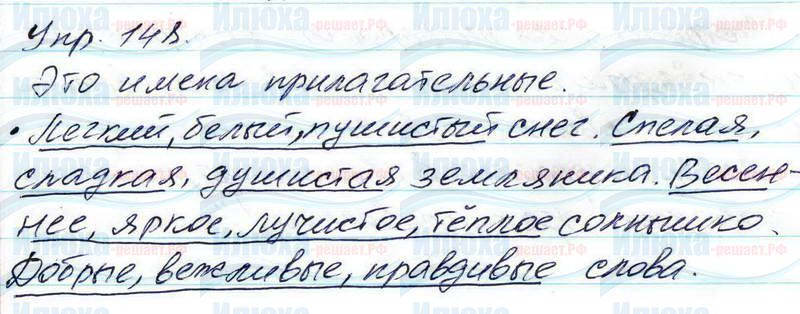 Упр. 148.
Это имена прилагательные.
• Легкий, белый, пушистый снег. Спелая,
сладкая, душистая земляника. Весен-
нее, яркое, лучистое, тёплое солнышко.
Добрые, вежливые, правдивые слова.